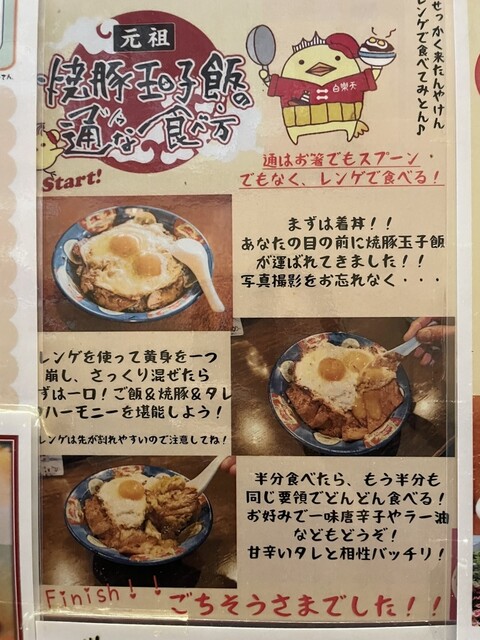 元祖
焼豚玉子飯の
通な食べ方
白楽天
せっかく来たんやけん
レンゲで食べてみとん♪
Start!
通はお箸でもスプーン
でもなく、レンゲで食べる！
まずは着丼！！
あなたの目の前に焼豚玉子飯
が運ばれてきました！！
写真撮影をお忘れなく・・・
レンゲを使って黄身を一つ
崩し、さっくり混ぜたら
ずは一口！ご飯&焼豚&タレ
ハーモニーを堪能しよう！
レンゲは先が割れやすいので注意してね！
半分食べたら、もう半分も
同じ要領でどんどん食べる！
お好みで一味唐辛子やラー油
などもどうぞ！
甘辛いタレと相性バッチリ！
Finish！！ごちそうさまでした！！